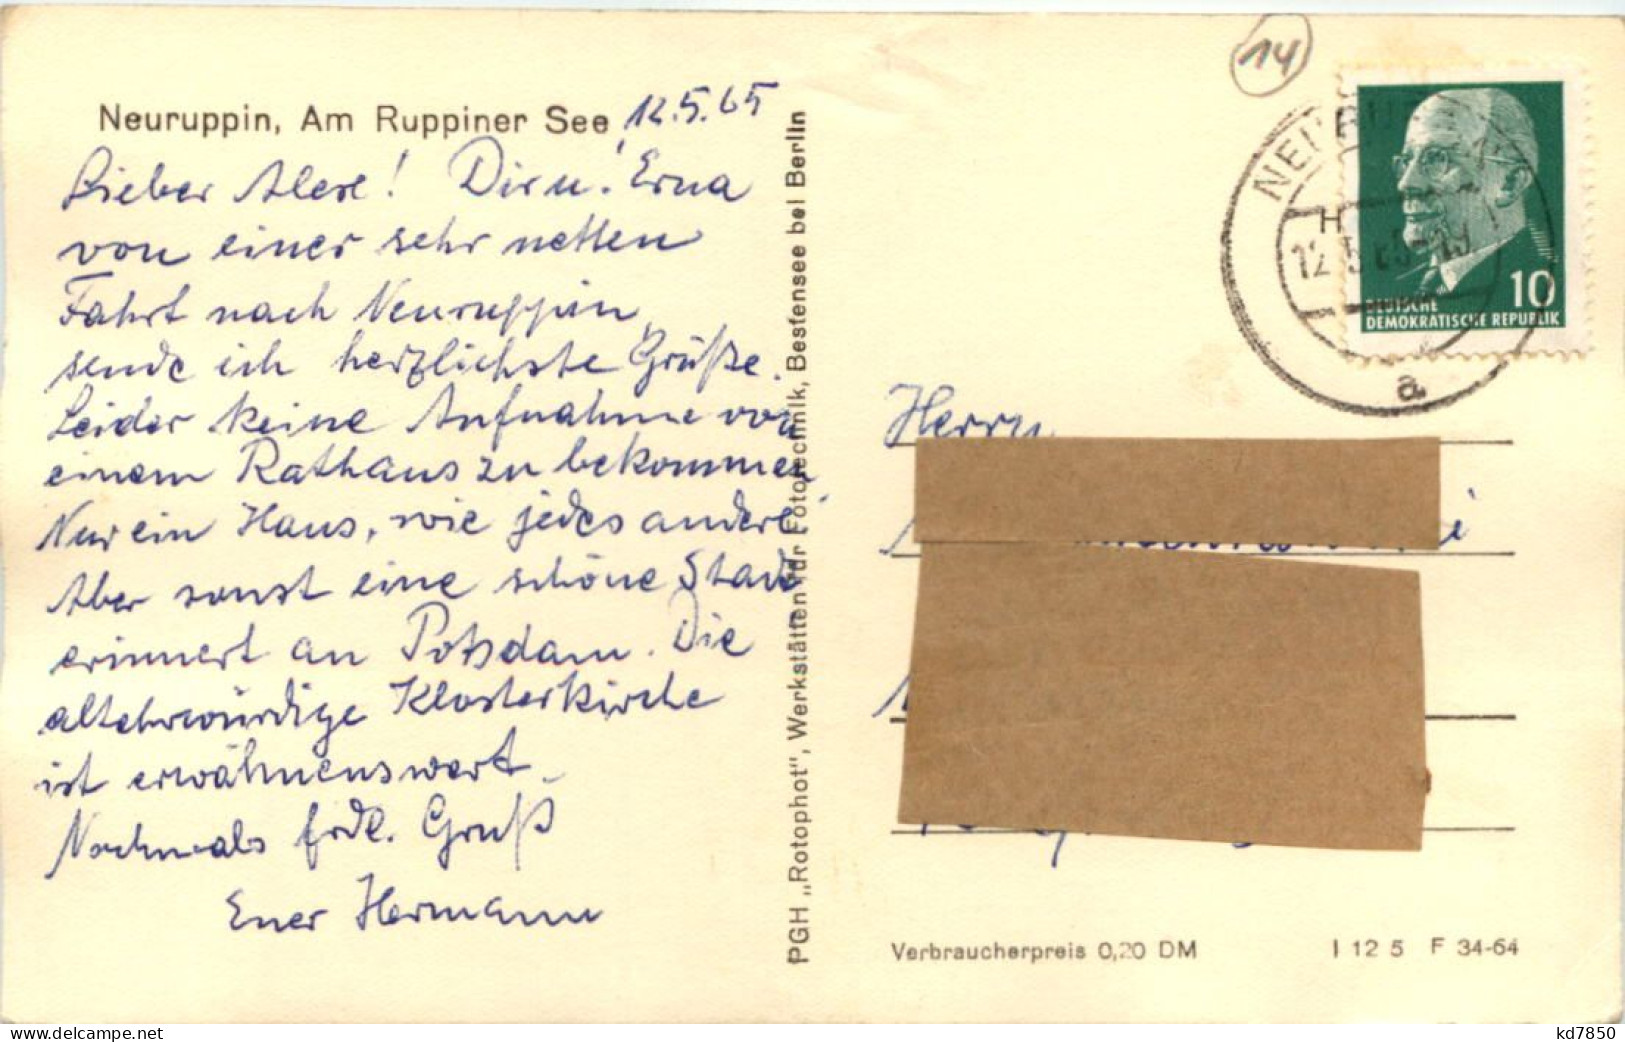 14
Neuruppin, Am Ruppiner See
12.5.65
Lieber Alex! Dir u. Erna
von einer sehr netten
Fahrt nach Neuruppin
sende ich herzlichste Grüße.
Leider keine Aufnahme von
einem Rathaus zu bekommen
Nur ein Haus, wie jedes andere
Aber sonst eine schöne Stadt
erinnert an Potsdam. Die
altehrwürdige Klosterkirche
ist erwähnenswert.
Nochmals frdl. Gruß
Euer Hermann
PGH „Rotophot", Werkstätten für Fototechnik, Bestensee bei Berlin
12.5.65-19
a
10
DEUTSCHE
DEMOKRATISCHE REPUBLIK
Herrn
Verbraucherpreis 0,20 DM
I 12 5 F 34-64
www.delcampe.net
kd7850